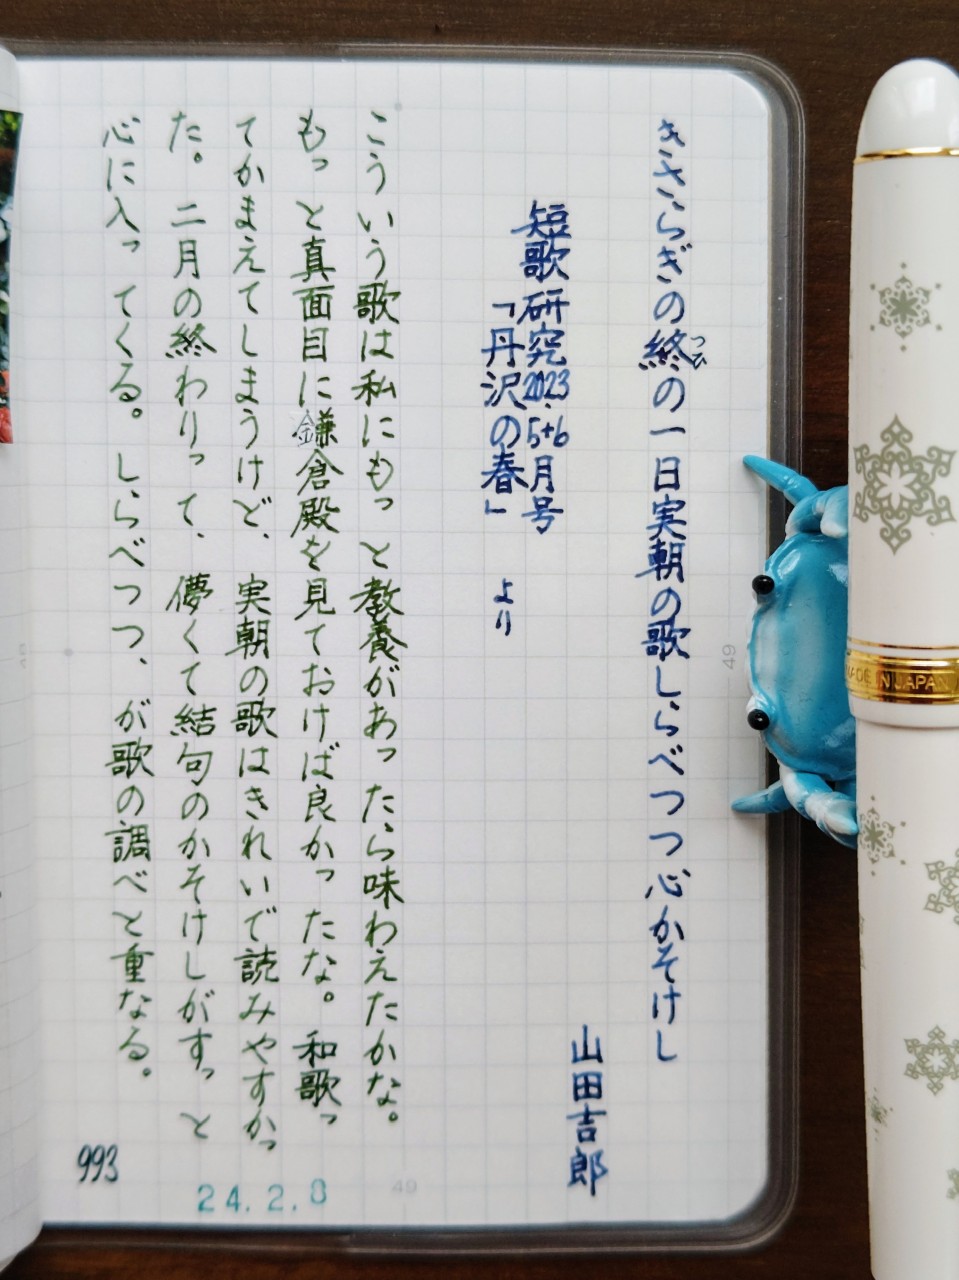 きさらぎの終の一日実朝の歌しらべつつ心かそけし
つひ
山田吉郎
短歌研究2023.5+6月号
「丹沢の春」より
こういう歌は私にもっと教養があったら味わえたかな。
もっと真面目に鎌倉殿を見ておけば良かったな。和歌っ
てかまえてしまうけど、実朝の歌はきれいで読みやすかっ
た。二月の終わりって、儚くて結句のかそけしがすっと
心に入ってくる。しらべつつ、が歌の調べと重なる。
993
24.2.8
49
49
49
MADE IN JAPAN